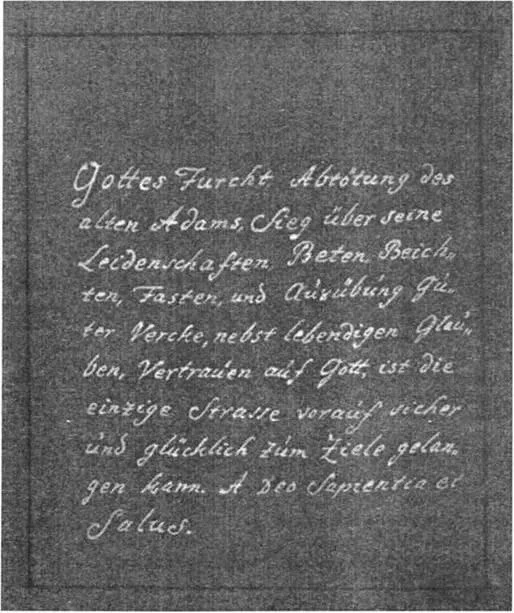 Gottes Furcht, Abtötung des
alten Adams, Sieg über seine
Leidenschaften, Beten, Beich„
ten, Fasten, und Ausübung gu„
ter Vercke, nebst lebendigen Glau„
ben, Vertrauen auf Gott, ist die
einzige Strasse worauf sicher
und glücklich zum Ziele gelan„
gen kann. A Deo Sapientia et
Salus.